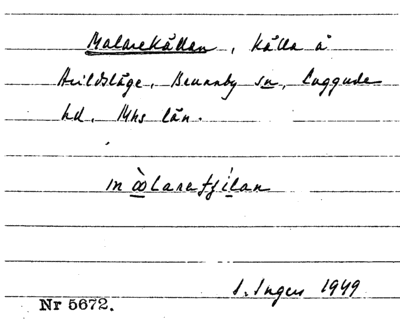 Malarekällan, källa å
Arildsläge, Brunnby sn, Luggude
hd. Mhs län.
mɑ̀laretʃílan
I. Ingers 1949
Nr 5672.